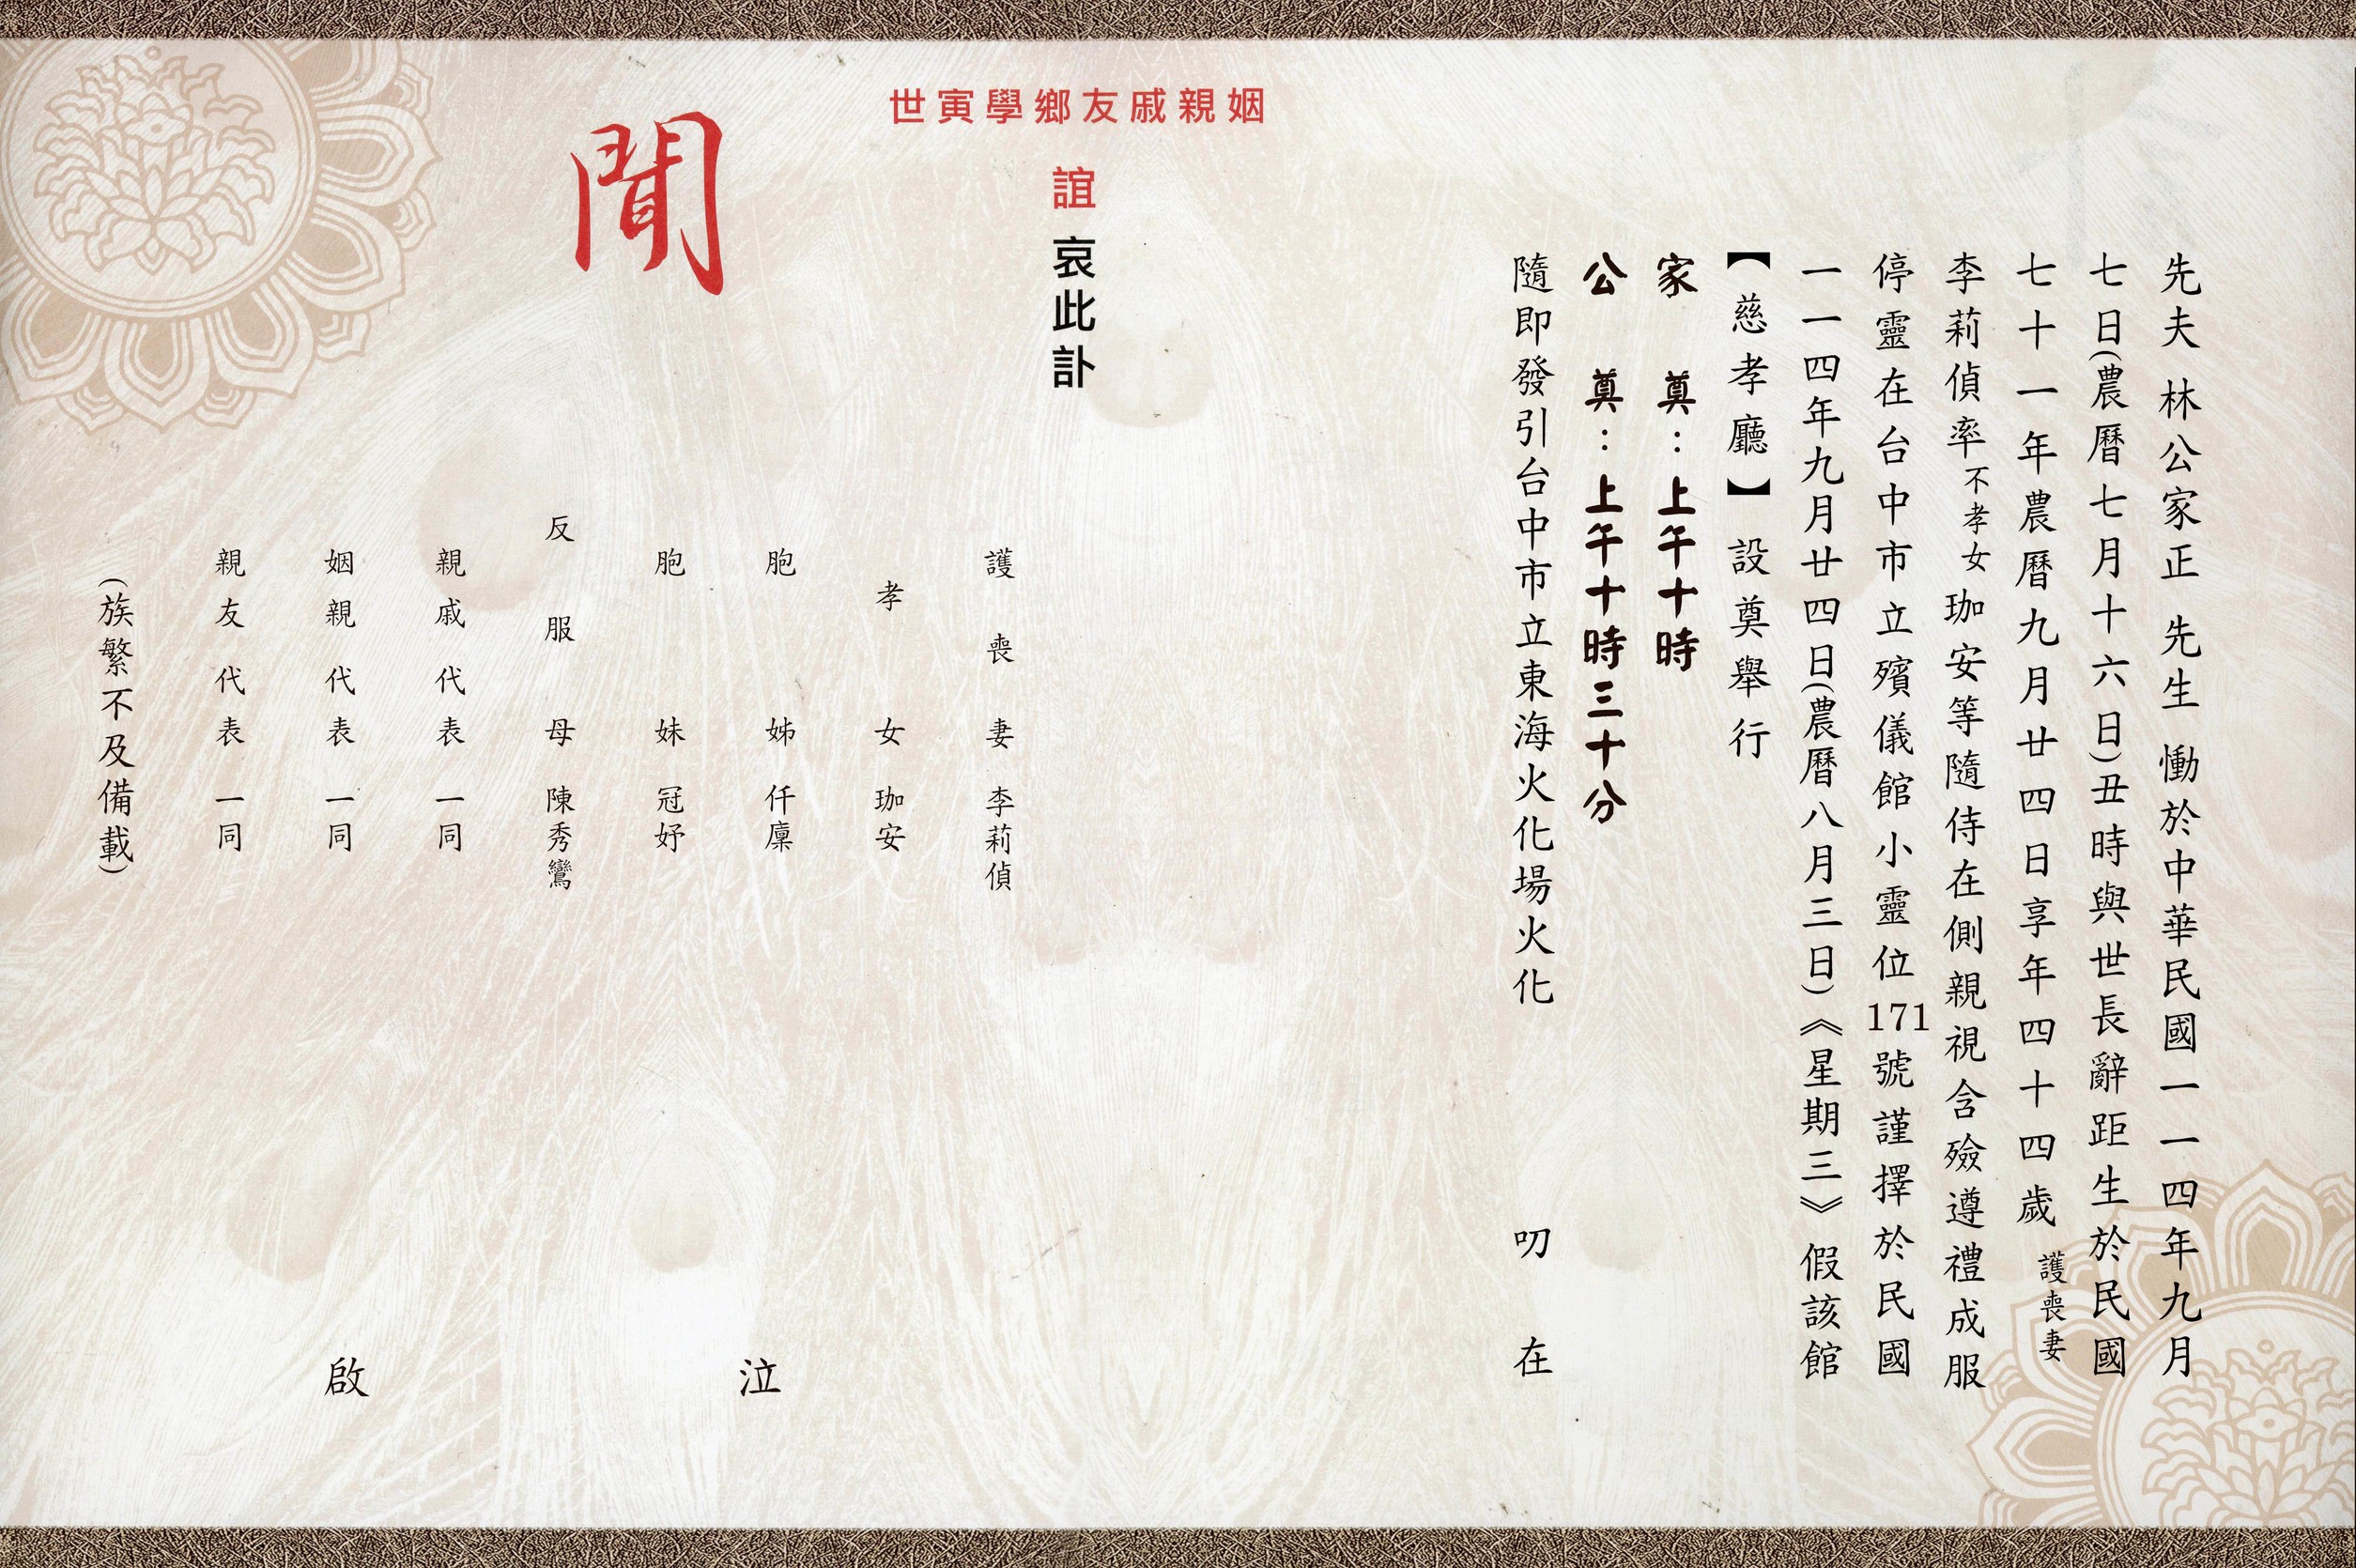 先夫 林公家正 先生 慟於中華民國一一四年九月
七日(農曆七月十六日)丑時與世長辭距生於民國
七十一年農曆九月廿四日享年四十四歲 護喪妻
李莉偵率不孝女珈安等隨侍在側親視含殮遵禮成服
停靈在台中市立殯儀館小靈位171號謹擇於民國
一一四年九月廿四日(農曆八月三日)《星期三》假該館
【慈孝廳】設奠舉行
家 奠:上午十時
公 奠:上午十時三十分
隨即發引台中市立東海火化場火化 叨在
姻親戚友鄉學寅世
誼 哀此訃
聞
護喪妻 李莉偵
孝女 珈安
胞姊 仟廩
胞妹 冠妤
反服母 陳秀鸞
親戚代表 一同
姻親代表 一同
親友代表 一同
(族繁不及備載)
泣啟